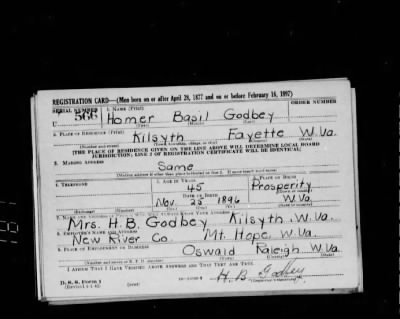 REGISTRATION CARD—(Men born on or after April 28, 1877 and on or before February 16, 1897)
SERIAL NUMBER
1. NAME (Print)
ORDER NUMBER
U 566
Homer Basil Godbey
(First) (Middle) (Last)
2. PLACE OF RESIDENCE (Print)
Kilsyth Fayette W. Va.
(Number and street) (Town, township, village, or city) (County) (State)
[THE PLACE OF RESIDENCE GIVEN ON THE LINE ABOVE WILL DETERMINE LOCAL BOARD
JURISDICTION; LINE 2 OF REGISTRATION CERTIFICATE WILL BE IDENTICAL]
3. MAILING ADDRESS
Same
[Mailing address if other than place indicated on line 2. If same insert word same]
4. TELEPHONE
5. AGE IN YEARS
6. PLACE OF BIRTH
45
Prosperity
DATE OF BIRTH
(Town or county)
Nov. 25 1896
W. Va.
(Exchange) (Number)
(Mo.) (Day) (Yr.)
(State or country)
7. NAME AND ADDRESS OF PERSON WHO WILL ALWAYS KNOW YOUR ADDRESS
Mrs. H. B. Godbey Kilsyth, W. Va.
8. EMPLOYER'S NAME AND ADDRESS
New River Co. Mt. Hope, W. Va.
9. PLACE OF EMPLOYMENT OR BUSINESS
Oswald Raleigh W. Va.
(Number and street or R. F. D. number) (Town) (County) (State)
I AFFIRM THAT I HAVE VERIFIED ABOVE ANSWERS AND THAT THEY ARE TRUE.
D. S. S. Form 1
(Revised 4-1-42)
H. B. Godbey